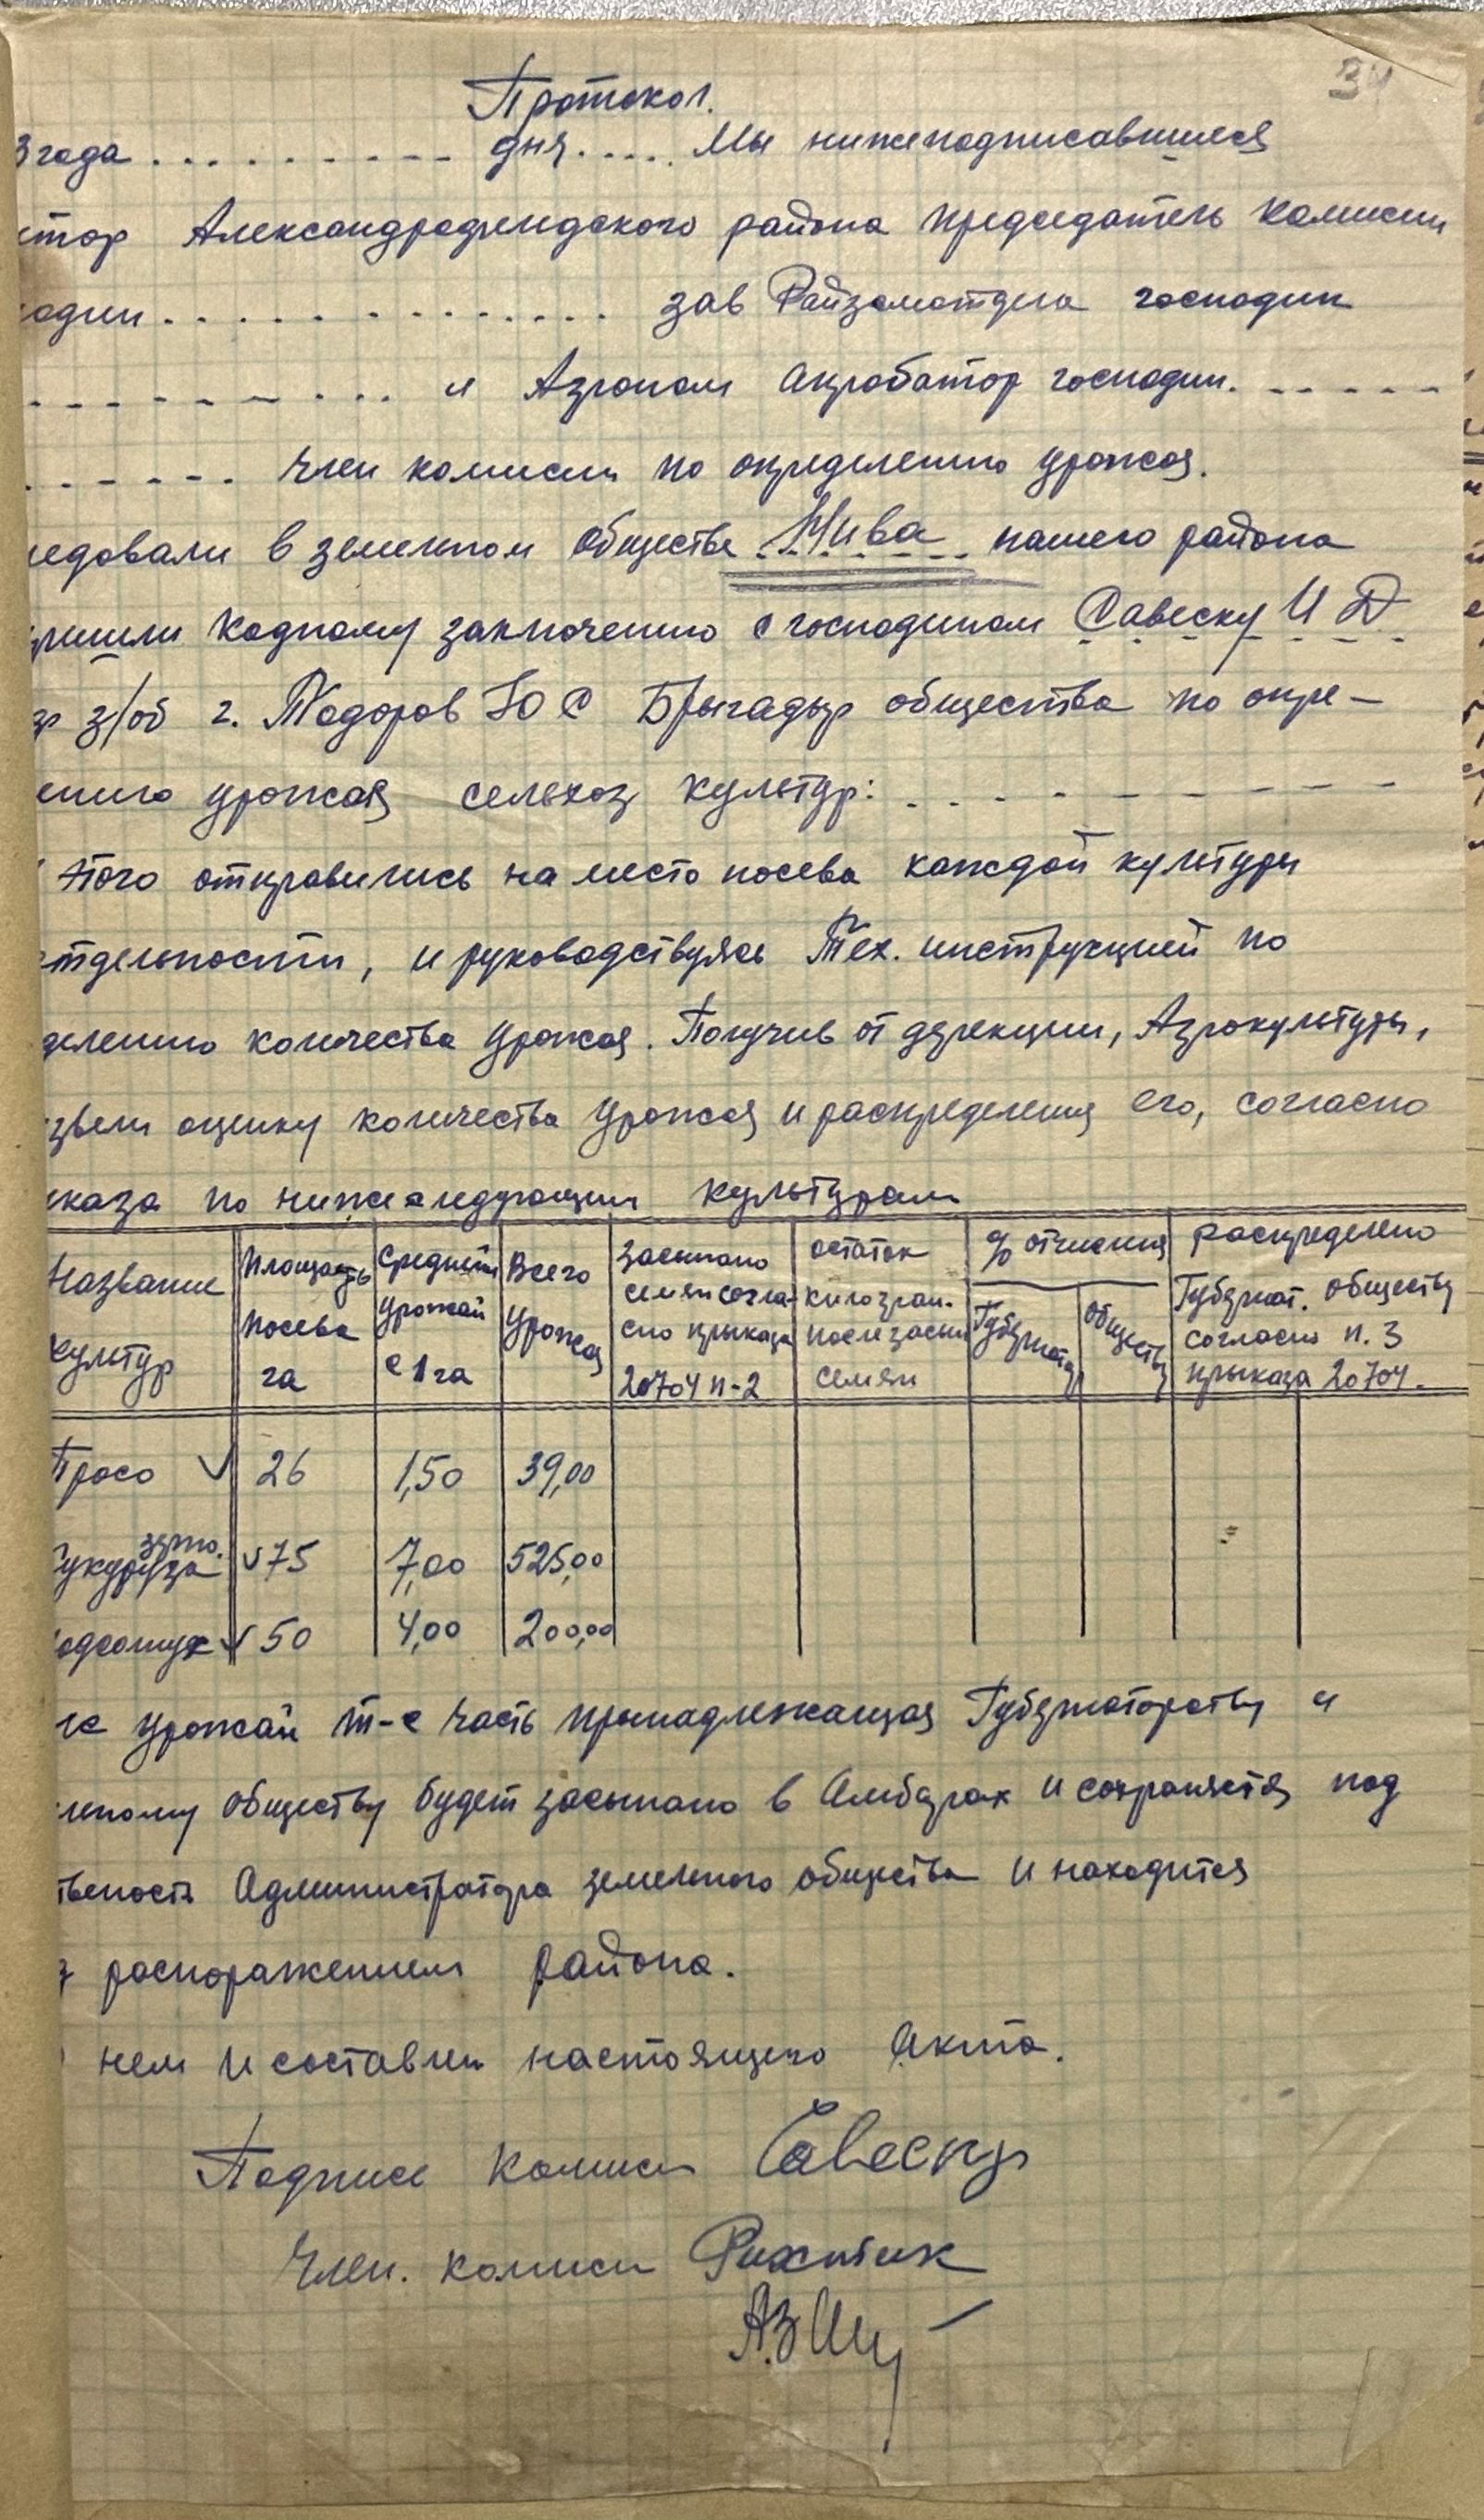 34
Протокол.
3 года . . . . . . . . . . дня. . . . . Мы нижеподписавшиеся
ктор Александрофендского района председатель комисии
подин . . . . . . . . . . . . . . зав Райземотдела господин
. . . . . . . . . . и Агроном Апробатор господин. . . . . . .
. . . . . . член комисии по определению урожая.
ледовали в земельном обществе Нива нашего района
ришли кодному заключению с господином Савеску И Д
ар з/об г. Тодоров Ю С Брыгадыр общества по опре-
ению урожая сельхоз культур: . . . . . . . . . .
этого отправились на место посева каждой культуры
отдельности, и руководствуясь Тех. инструкцией по
делению количества урожая. Получив от дирекции, Агрокультуры,
звели оценку количества урожая и распределения его, согласно
иказа по нижеследующим культурам
Название культур | Площадь посева га | Средний урожай с 1 га | Всего урожая | Засыпано семян согласно прыказа 20704 п-2 | остаток килограм. после засып семян | % отчисления Губернат | обществу | распределено Губернат. обществу согласно п. 3 прыказа 20704.
Просо ✓ | 26 | 1,50 | 39,00
Кукуруза зерно. | ✓ 75 | 7,00 | 525,00
одсолнух ✓ | 50 | 4,00 | 200,00
урожай т-е часть прынадлежащая Губернаторству и
льному обществу будет засыпано в Амбарах и сохраняется под
твеность Администратора земельного общества и находится
распоражением района.
нем и составлен настоящего Акта.
Подписи Комиси Савеску
Член. комиси